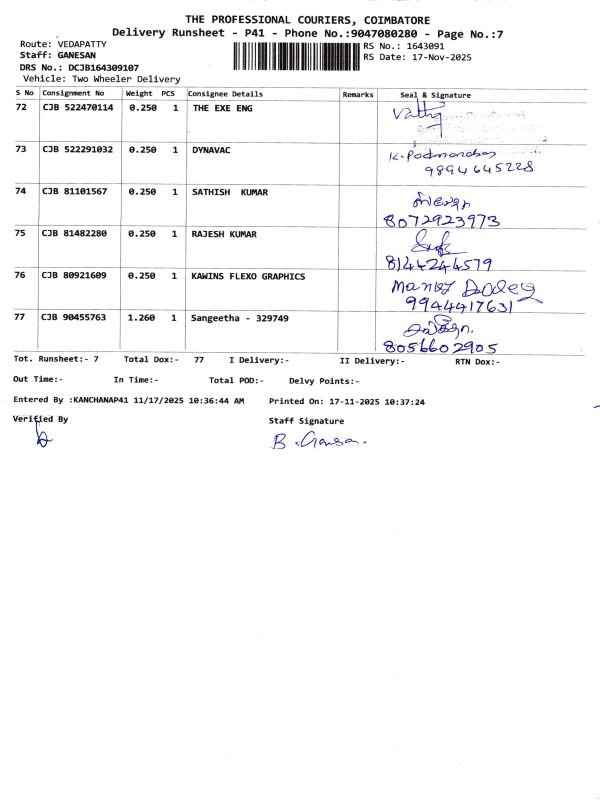 THE PROFESSIONAL COURIERS, COIMBATORE
Delivery Runsheet - P41 - Phone No.:9047080280 - Page No.:7
Route: VEDAPATTY
RS No.: 1643091
Staff: GANESAN
RS Date: 17-Nov-2025
DRS No.: DCJB164309107
Vehicle: Two Wheeler Delivery
S No Consignment No Weight PCS Consignee Details Remarks Seal & Signature
72 CJB 522470114 0.250 1 THE EXE ENG
73 CJB 522291032 0.250 1 DYNAVAC K.Padmanaban
9894645228
74 CJB 81101567 0.250 1 SATHISH KUMAR
8072923973
75 CJB 81482280 0.250 1 RAJESH KUMAR
8144244579
76 CJB 80921609 0.250 1 KAWINS FLEXO GRAPHICS
9944417631
77 CJB 90455763 1.260 1 Sangeetha - 329749
8056602905
Tot. Runsheet:- 7 Total Dox:- 77 I Delivery:- II Delivery:- RTN Dox:-
Out Time:- In Time:- Total POD:- Delvy Points:-
Entered By :KANCHANAP41 11/17/2025 10:36:44 AM Printed On: 17-11-2025 10:37:24
Verified By Staff Signature
B.Ganesan.